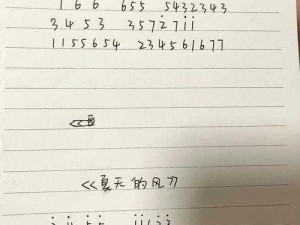 1 6 6 655 5432343
3 4 5 3 3 5 7 2̇ 7 i̇ i̇
1155654 234561677
<<夏天的风刀